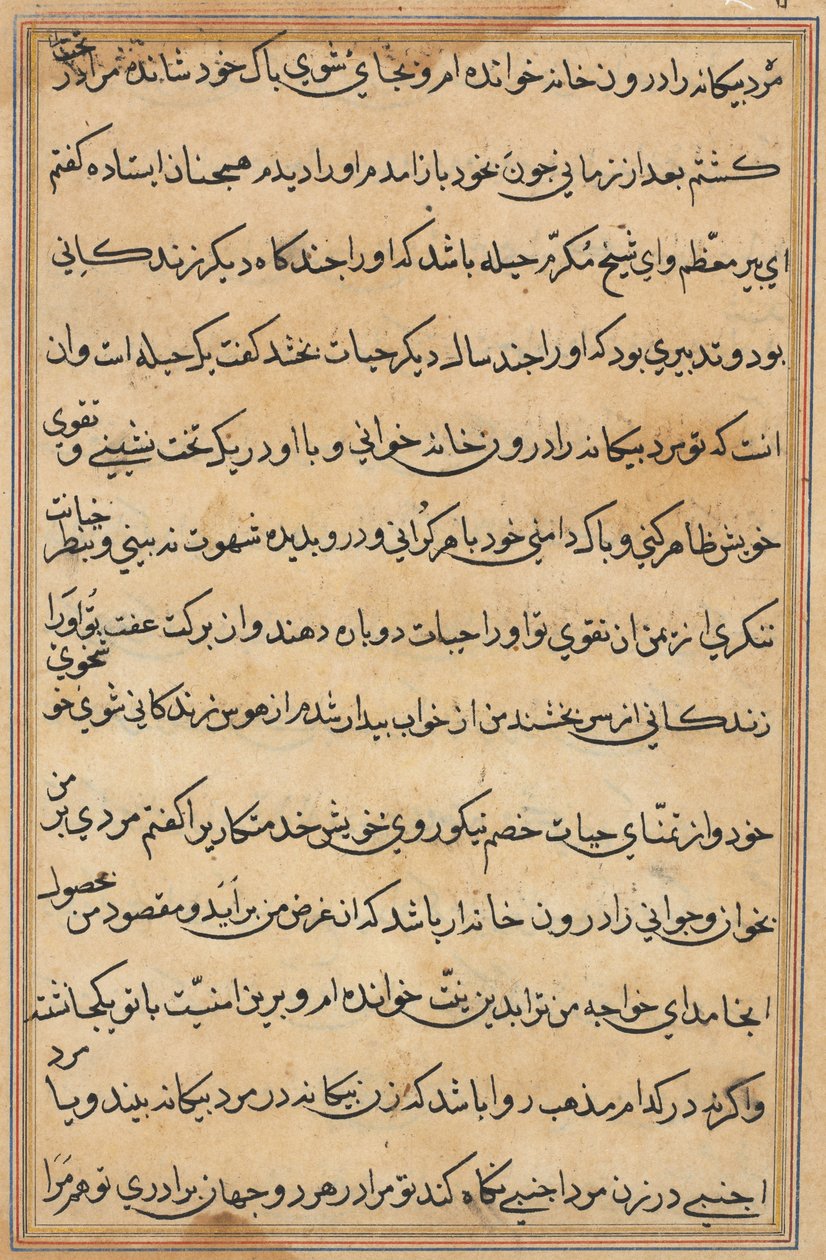 مرد بیکانه را درون خانه خوانده ام و بجای شوی باک خود شانده مرا در تخت
کشتم بعد از زمانی جون بخود باز امدم او را دیدم همجنان ایستاده کفتم
ای بیر معظّم و ای شیخ مُکرّم حیله باشد که او را جند کاه دیکر زندکانی
بود و تدبیری بود که او را جند سال دیکر حیات بخشد کفت یک حیله است و ان
انست که تو مرد بیکانه را درون خانه خوانی و با او در یک تخت نشینی و تقوی
خویش ظاهر کنی و باک دامنی خود با هر کُرانی و در و بدیده شهوت نه بینی و بنظر خیانت
ننکری از یمن ان تقوی تو او را حیات دوباره دهند و از برکت عفت تو اورا
زندکانی از سر بخشند من از خواب بیدار شدم از هوس زندکانی شوی
خود و از تمنّای حیات خصم نیکو روی خویش خدمتکاریرا کفتم مردی بر من
بخوان و جوانی را درون خانه ار باشد که ان غرض من بر آید و مقصود من بحصول
انجامد ای خواجه من ترا بدین نیّت خوانده ام و برین امنیّت با تو یکجا نشسته
و اکر نه در کدام مذهب روا باشد که زن بیکانه در مرد بیکانه بیند و یا مرد
اجنبی در زن مرد اجنبی نکاه کند تو مرا در هر دو جهان برادری تو هم مَرَا